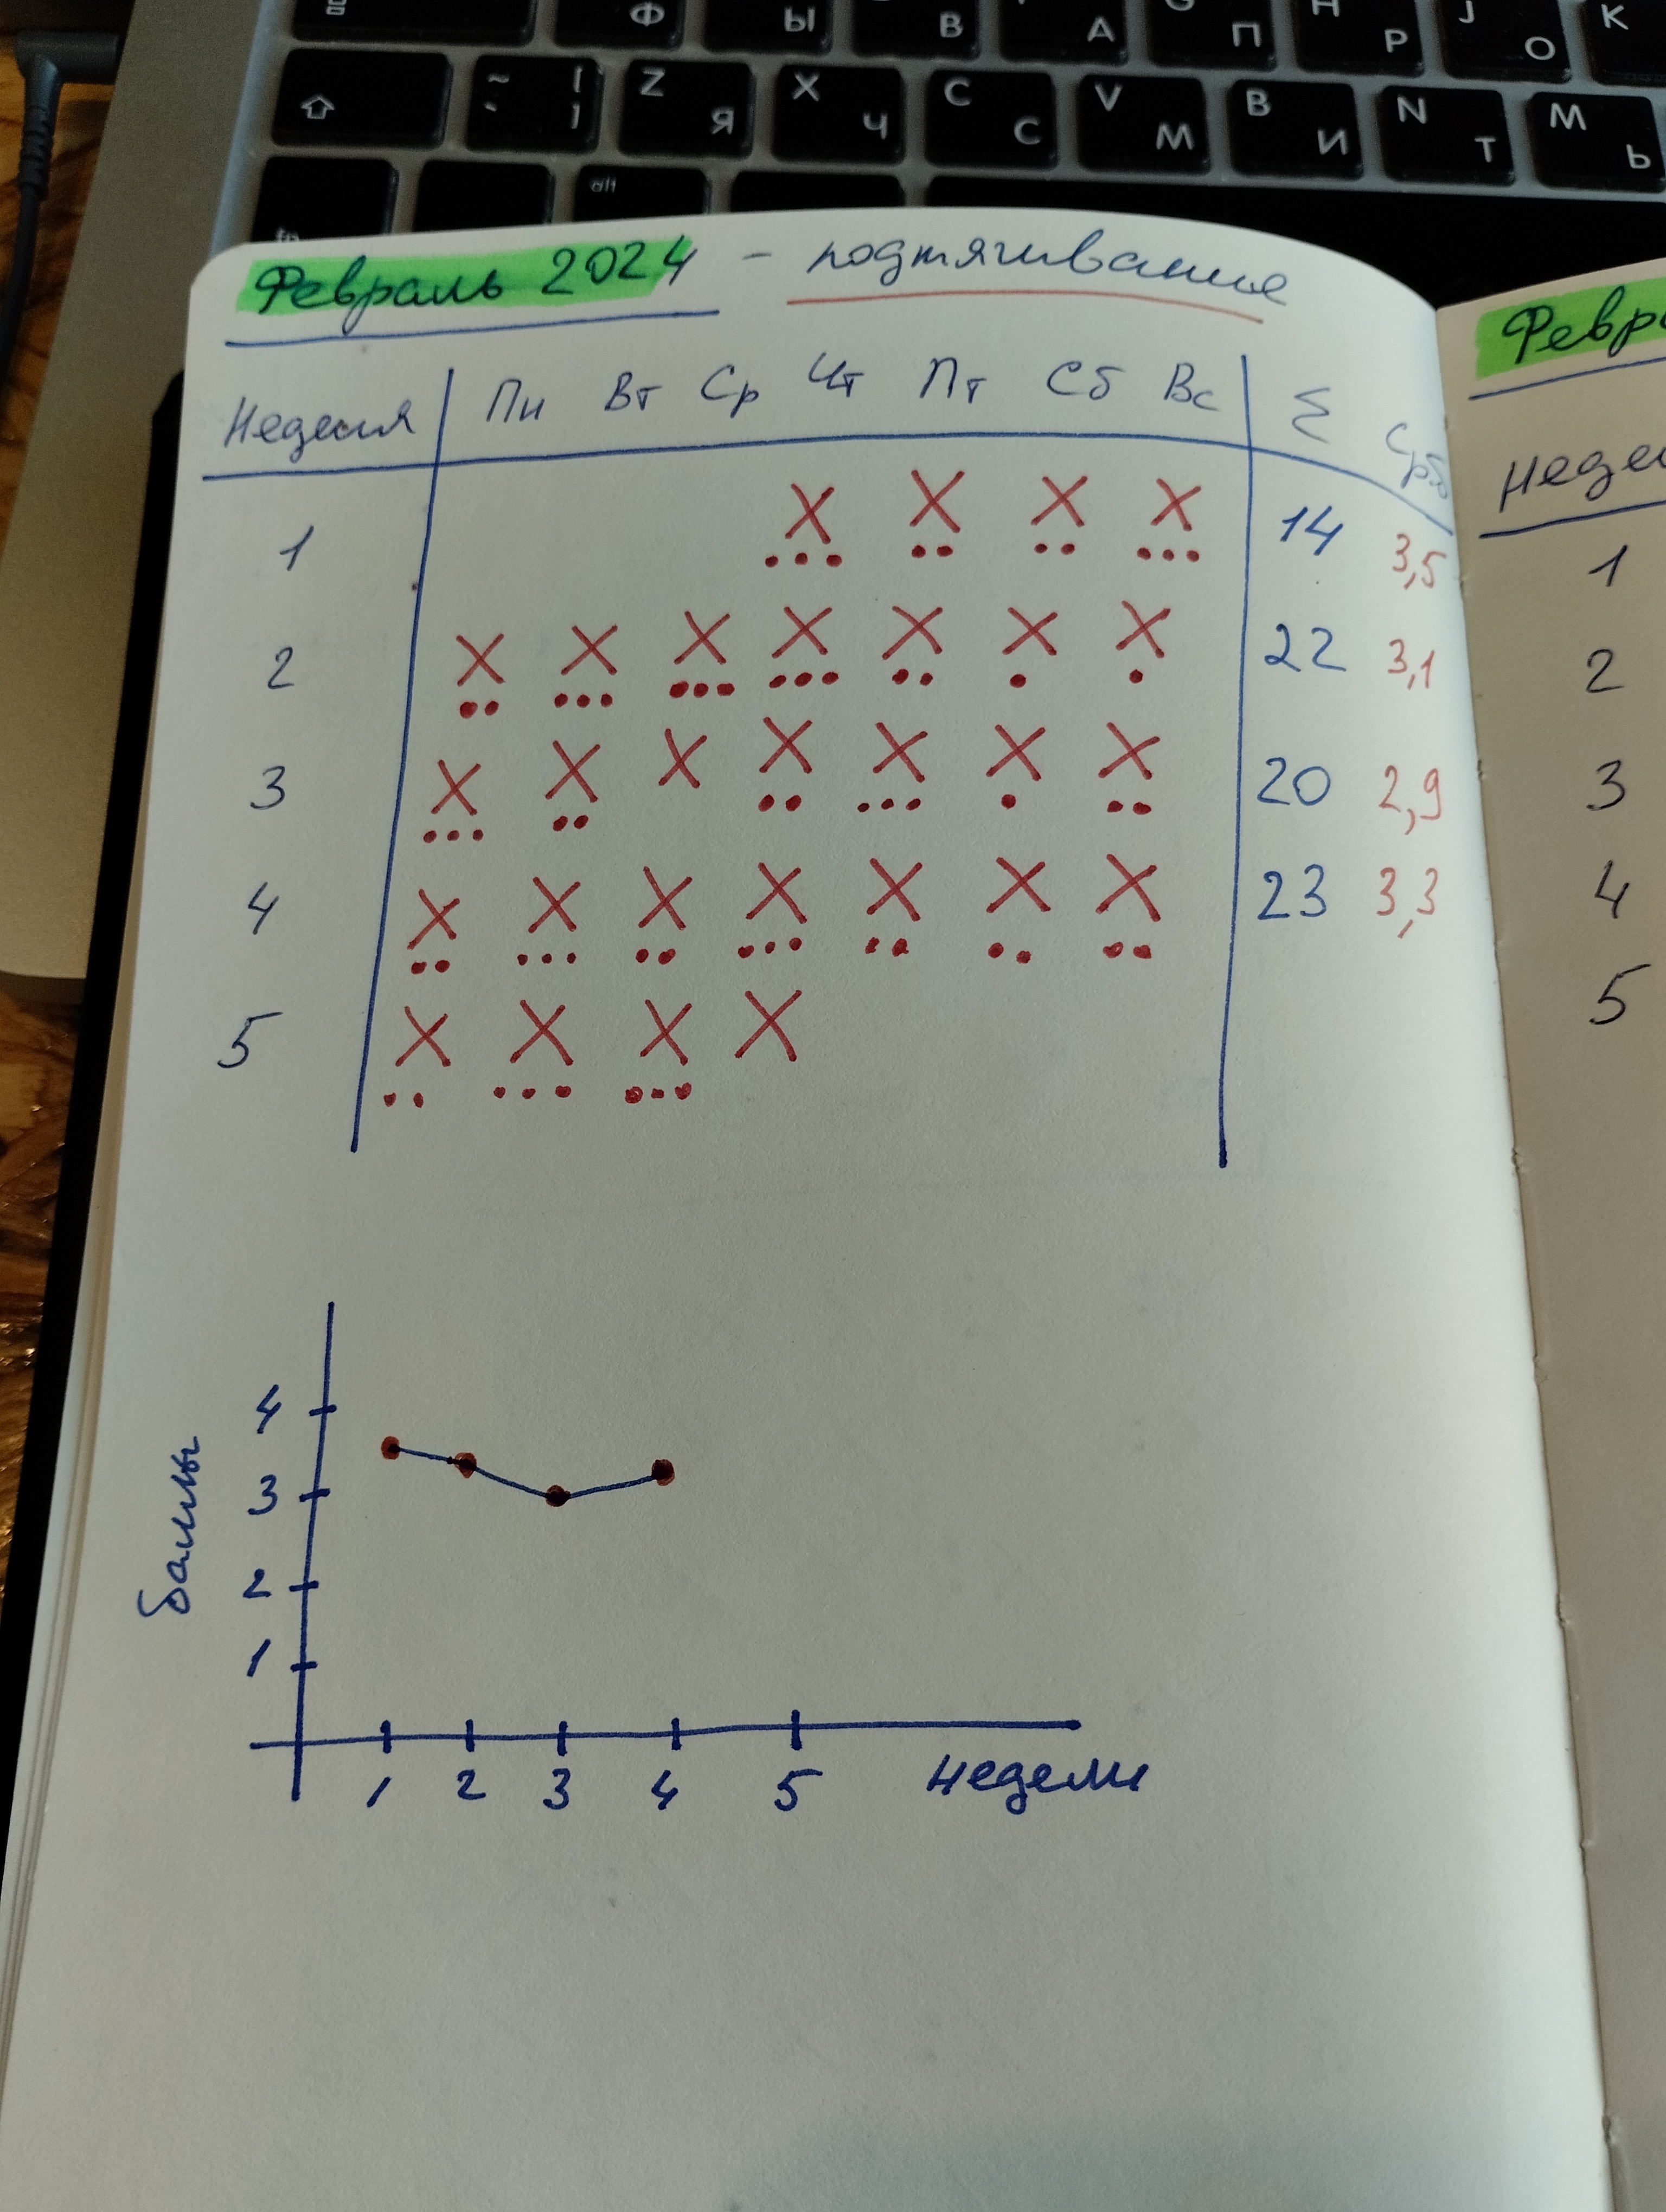 Ф Ы В А П Р J О К
~ ` Z Я X Ч C С V М B И N Т M Ь
alt
fn
Февраль 2024 - подтягивание
Неделя Пн Вт Ср Чт Пт Сб Вс Σ
1 X X X X 14 3,5
2 X X X X X X X 22 3,1
3 X X X X X X X 20 2,9
4 X X X X X X X 23 3,3
5 X X X X
Баллы
4
3
2
1
1 2 3 4 5 недели
Февр
Недел
1
2
3
4
5